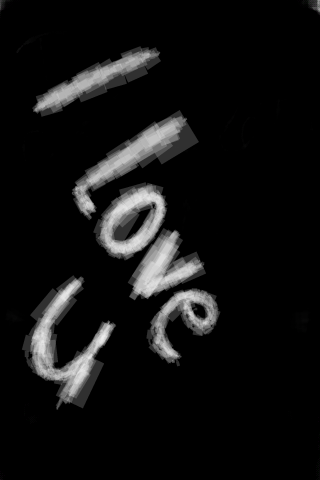 I
love
u